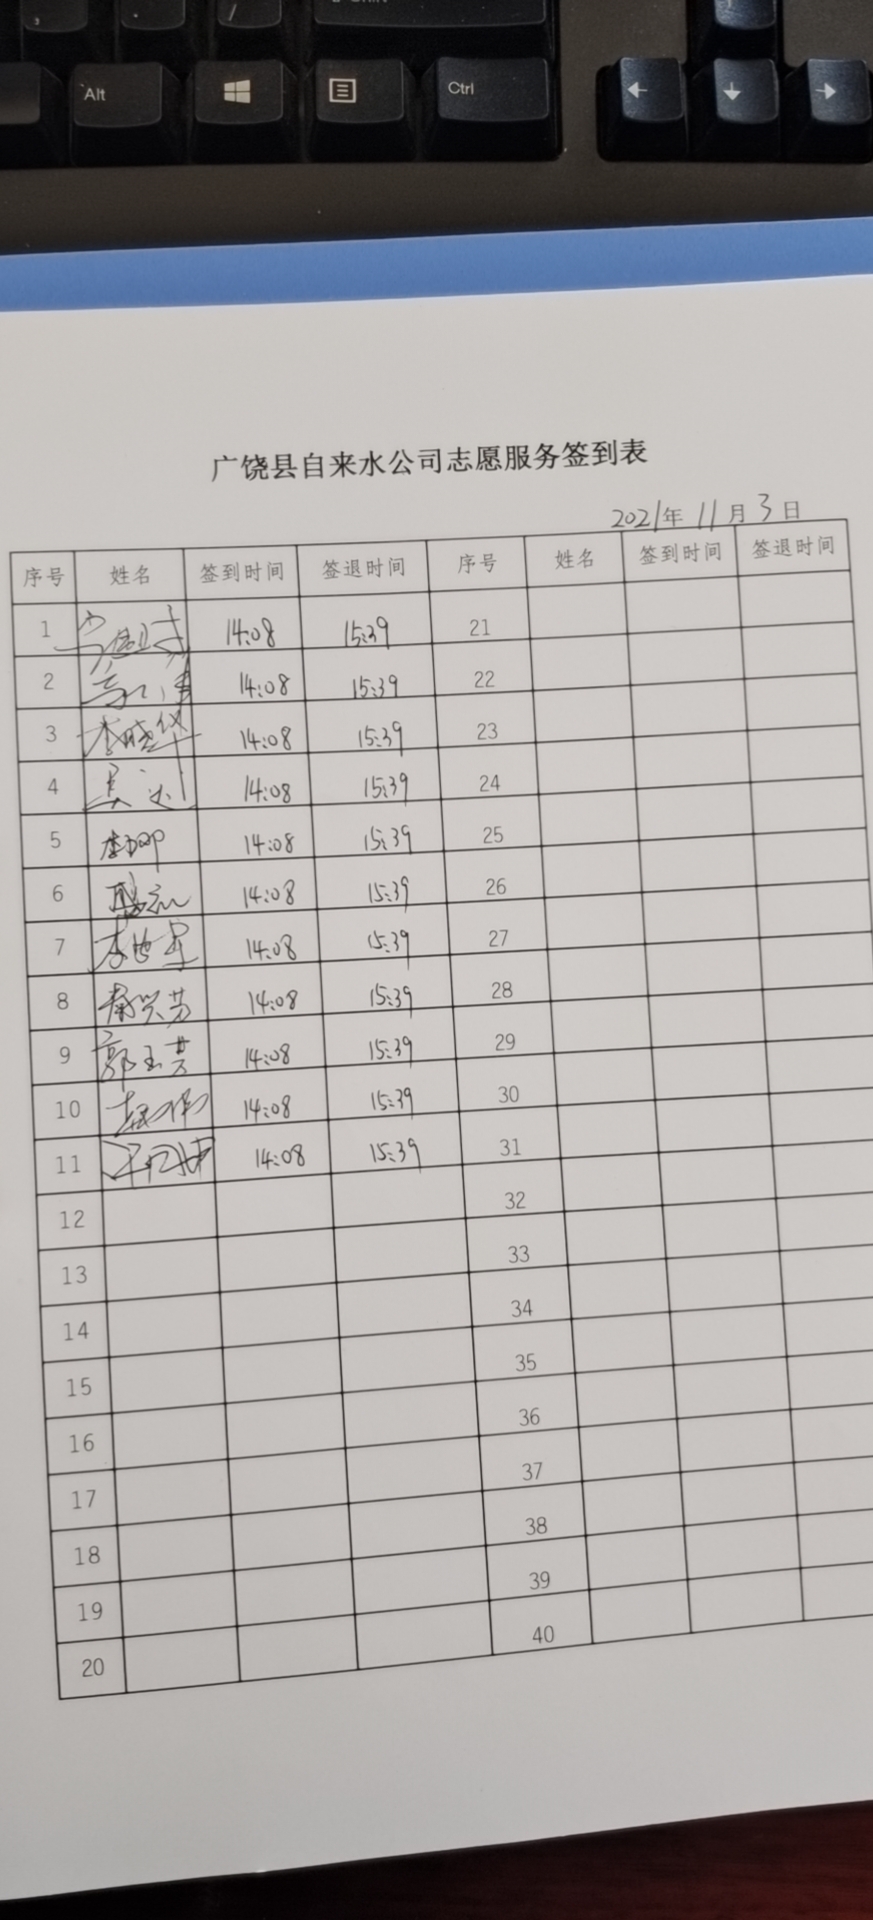 Alt
Ctrl
广饶县自来水公司志愿服务签到表
2021年 11月 3日
序号 姓名 签到时间 签退时间 序号 姓名 签到时间 签退时间
1 14:08 15:39 21
2 14:08 15:39 22
3 李晓华 14:08 15:39 23
4 14:08 15:39 24
5 14:08 15:39 25
6 14:08 15:39 26
7 14:08 15:39 27
8 14:08 15:39 28
9 郭玉芳 14:08 15:39 29
10 14:08 15:39 30
11 14:08 15:39 31
12 32
13 33
14 34
15 35
16 36
17 37
18 38
19 39
20 40